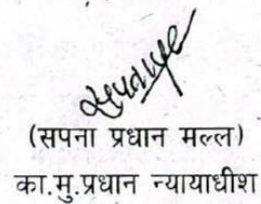 (सपना प्रधान मल्ल)
का.मु.प्रधान न्यायाधीश